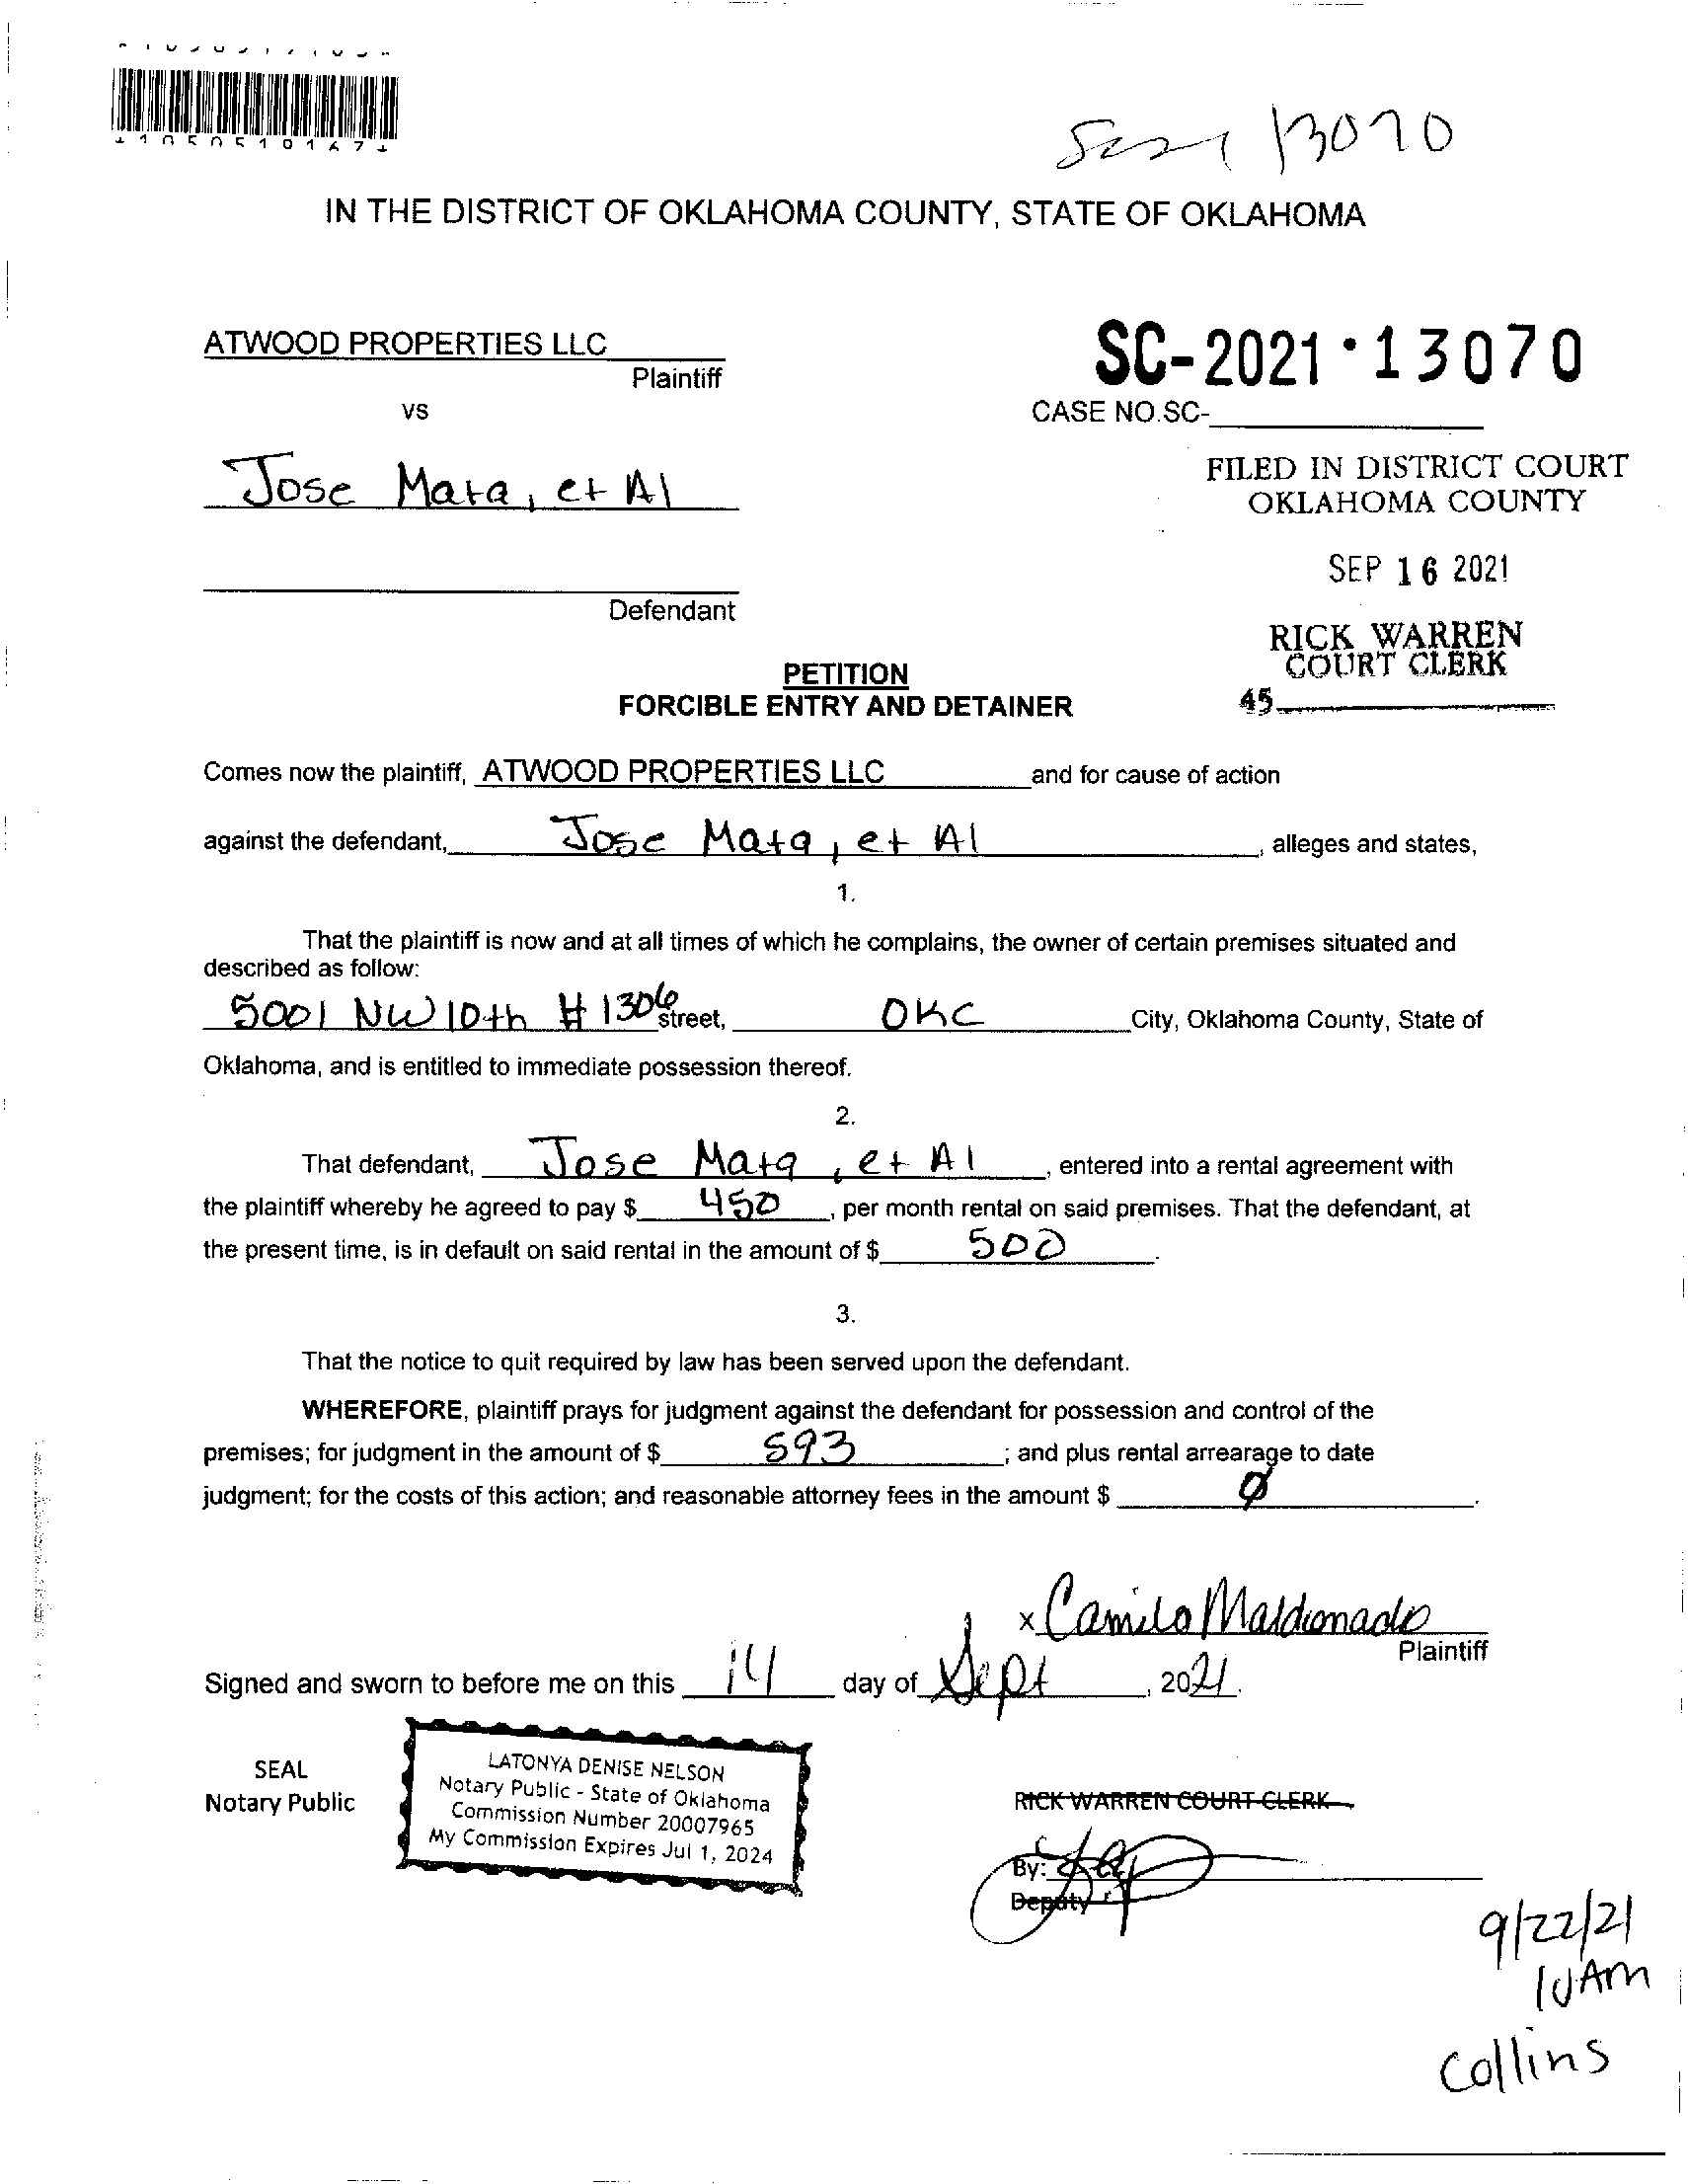 *1050510167*
13070
IN THE DISTRICT OF OKLAHOMA COUNTY, STATE OF OKLAHOMA
ATWOOD PROPERTIES LLC
Plaintiff
vs
SC-2021·13070
CASE NO.SC-
Jose Mata, et Al
FILED IN DISTRICT COURT
OKLAHOMA COUNTY
SEP 16 2021
Defendant
RICK WARREN
COURT CLERK
45
PETITION
FORCIBLE ENTRY AND DETAINER
Comes now the plaintiff, ATWOOD PROPERTIES LLC and for cause of action
against the defendant, Jose Mata, et Al, alleges and states,
1.
That the plaintiff is now and at all times of which he complains, the owner of certain premises situated and
described as follow:
5001 NW 10th # 1306 street, OKC City, Oklahoma County, State of
Oklahoma, and is entitled to immediate possession thereof.
2.
That defendant, Jose Mata, et Al, entered into a rental agreement with
the plaintiff whereby he agreed to pay $ 450, per month rental on said premises. That the defendant, at
the present time, is in default on said rental in the amount of $ 500.
3.
That the notice to quit required by law has been served upon the defendant.
WHEREFORE, plaintiff prays for judgment against the defendant for possession and control of the
premises; for judgment in the amount of $ 593; and plus rental arrearage to date
judgment; for the costs of this action; and reasonable attorney fees in the amount $ Ø.
x Camilo Maldonado
Plaintiff
Signed and sworn to before me on this 14 day of Sept, 2021.
SEAL
Notary Public
LATONYA DENISE NELSON
Notary Public - State of Oklahoma
Commission Number 20007965
My Commission Expires Jul 1, 2024
RICK WARREN COURT CLERK
By:
Deputy
9/22/21
10AM
Collins